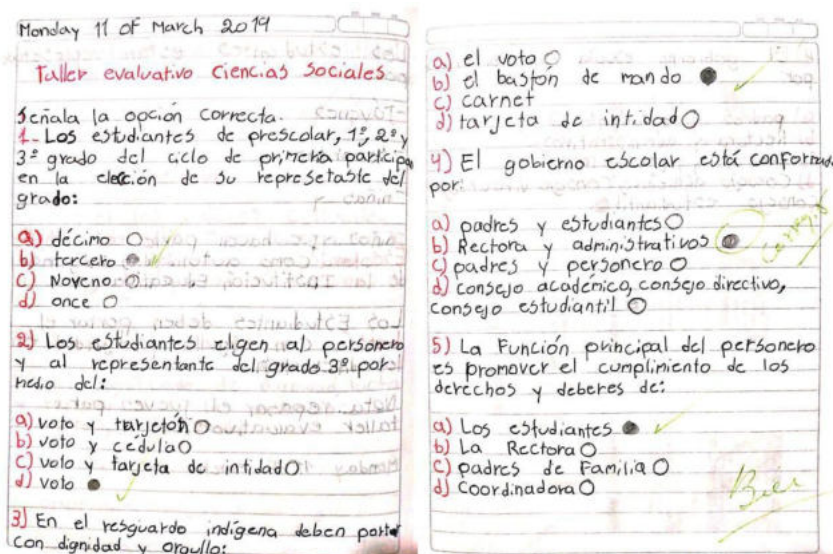 Monday 11 of March 2019
Taller evaluativo Ciencias Sociales
Señala la opción correcta.
1- Los estudiantes de prescolar, 1º, 2º y
3º grado del ciclo de primeria participa
en la elección de su represetaste del
grado:
a) décimo
b) tercero
c) Noveno
d) once
2) Los estudiantes eligen al personero
y al representante del grado 3º por
medio del:
a) voto y tarjetón
b) voto y cédula
c) voto y tarjeta de intidad
d) voto
3) En el resguardo indígena deben portar
con dignidad y orgullo:
a) el voto
b) el bastón de mando
c) carnet
d) tarjeta de intidad
4) El gobierno escolar está conformado
por:
a) padres y estudiantes
b) Rectora y administrativos
Corregir
c) padres y personero
d) consejo académico, consejo directivo,
consejo estudiantil
5) La Función principal del personero
es promover el cumplimiento de los
derechos y deberes de:
a) Los estudiantes
b) La Rectora
c) padres de Familia
d) Coordinadora